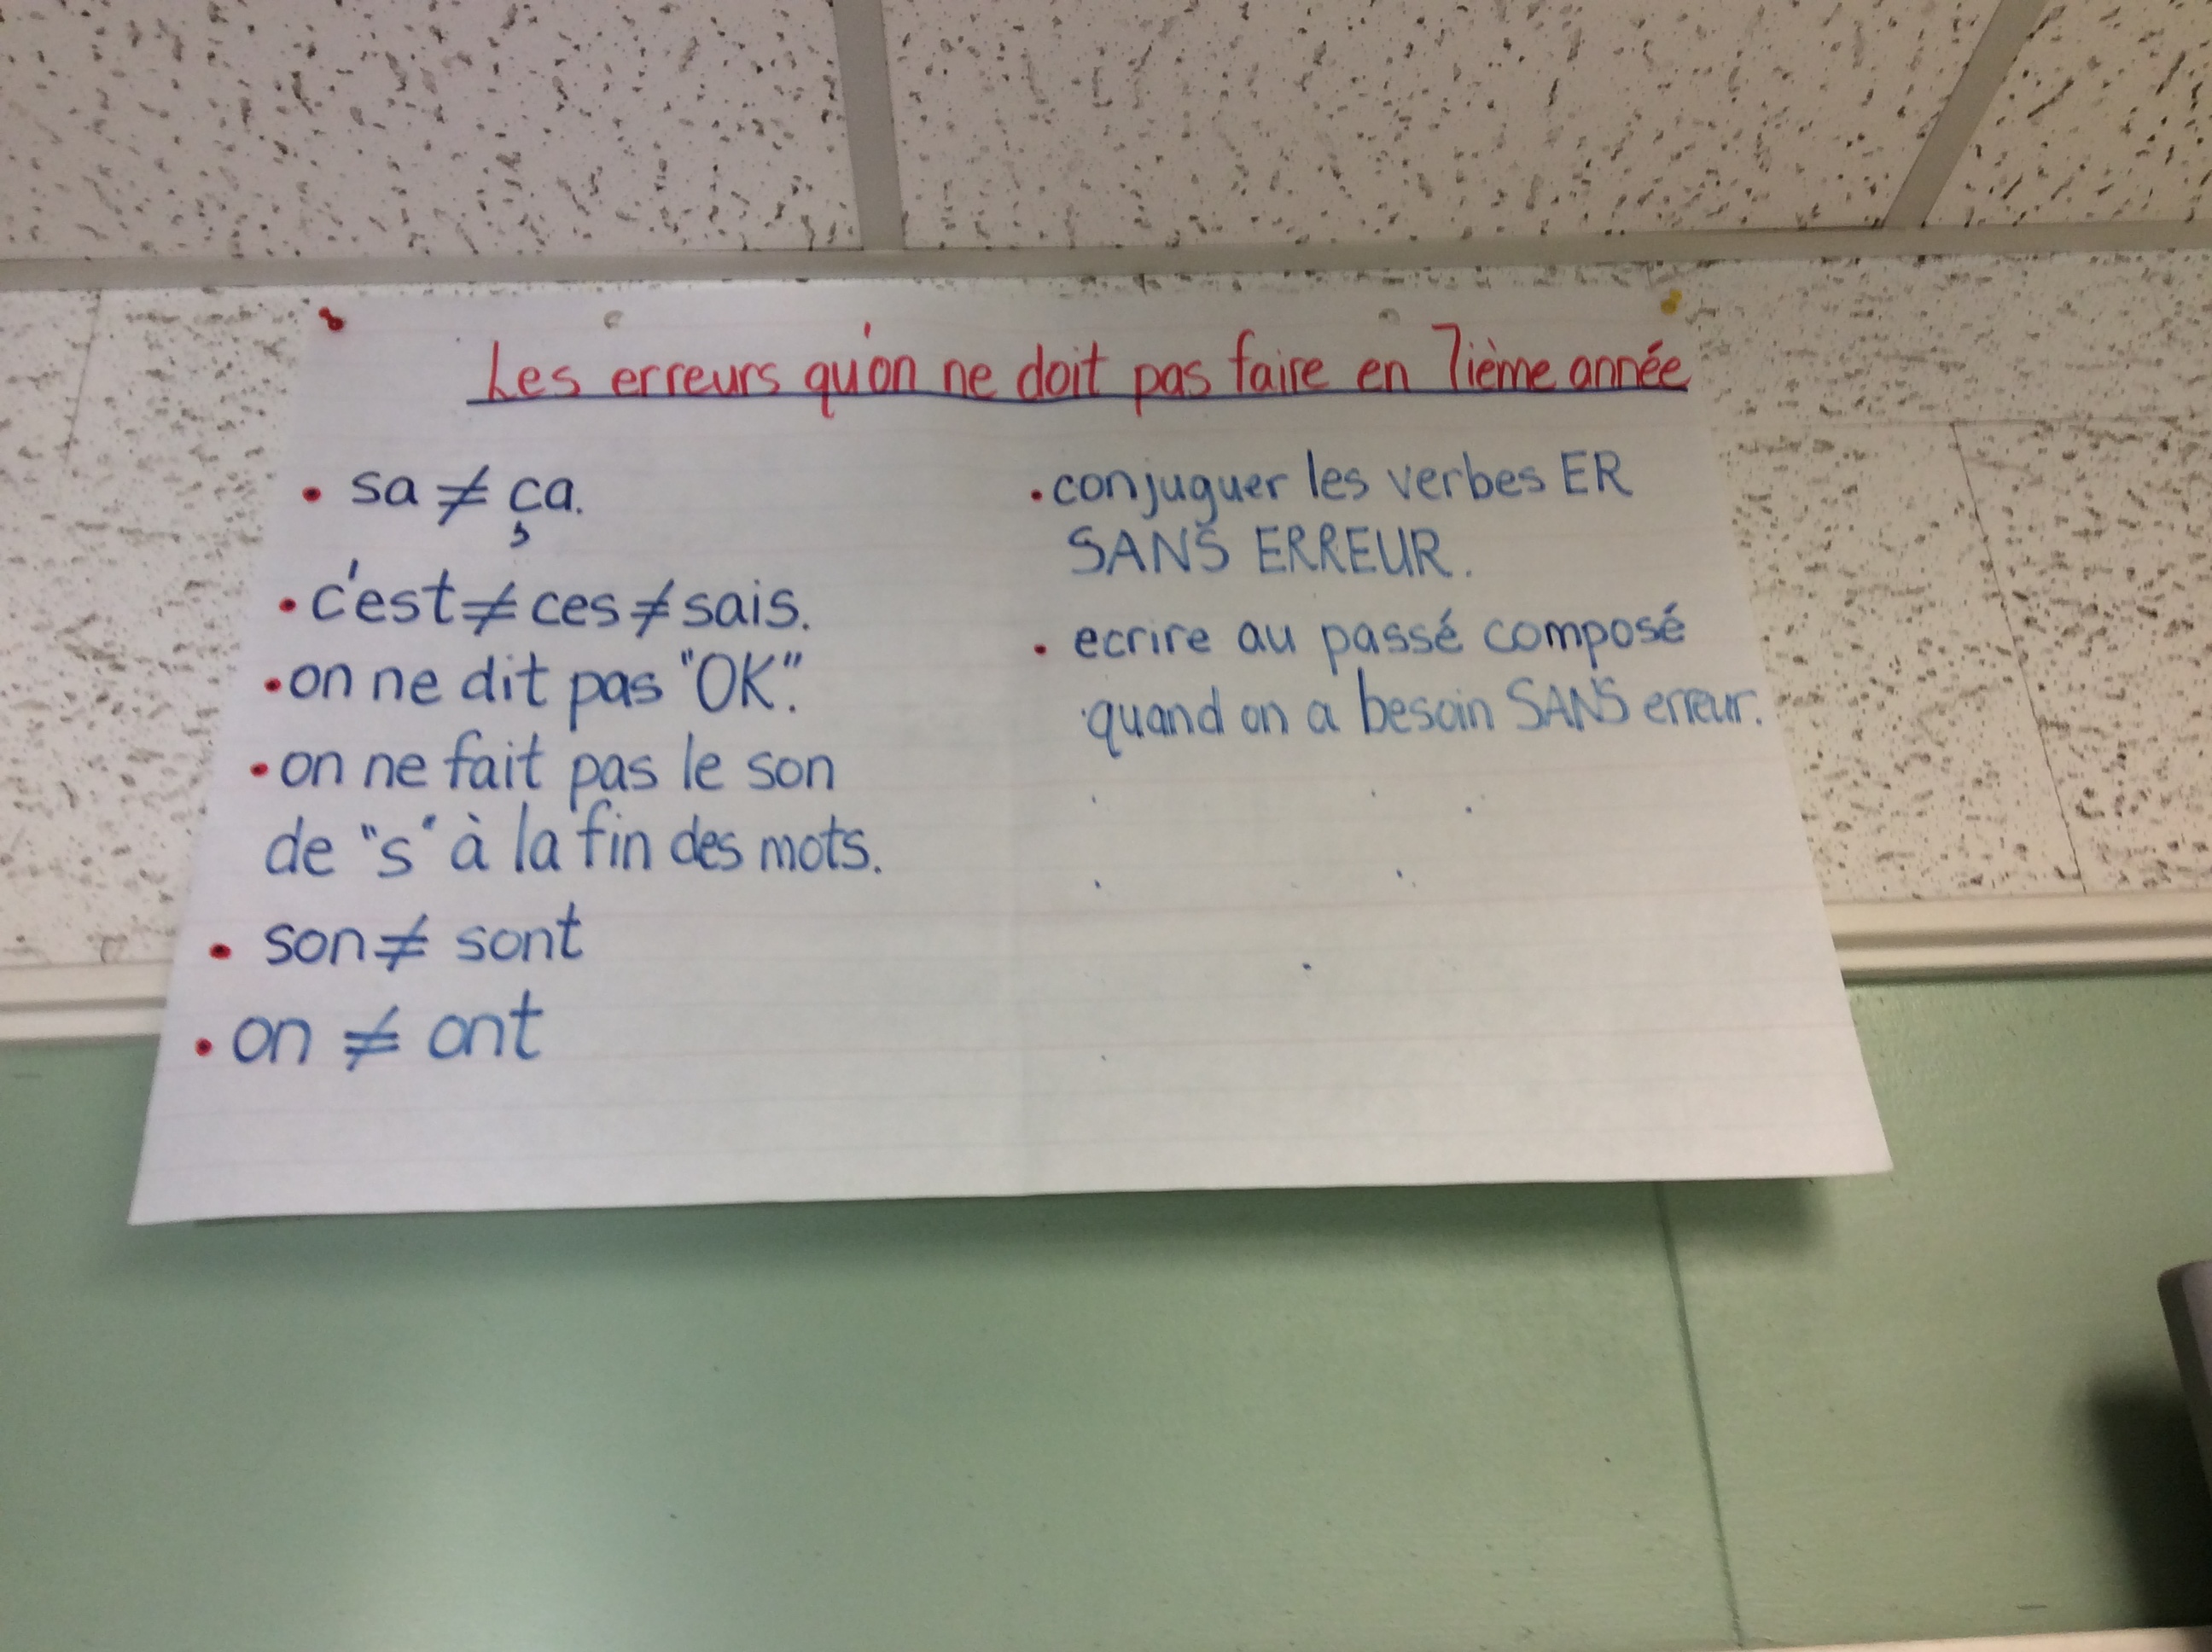 Les erreurs qu'on ne doit pas faire en 7ième année
• sa ≠ ça.
• c'est ≠ ces ≠ sais.
• on ne dit pas "OK".
• on ne fait pas le son
de "s" à la fin des mots.
• son ≠ sont
• on ≠ ont
• conjuguer les verbes ER
SANS ERREUR.
• ecrire au passé composé
quand on a besoin SANS erreur.